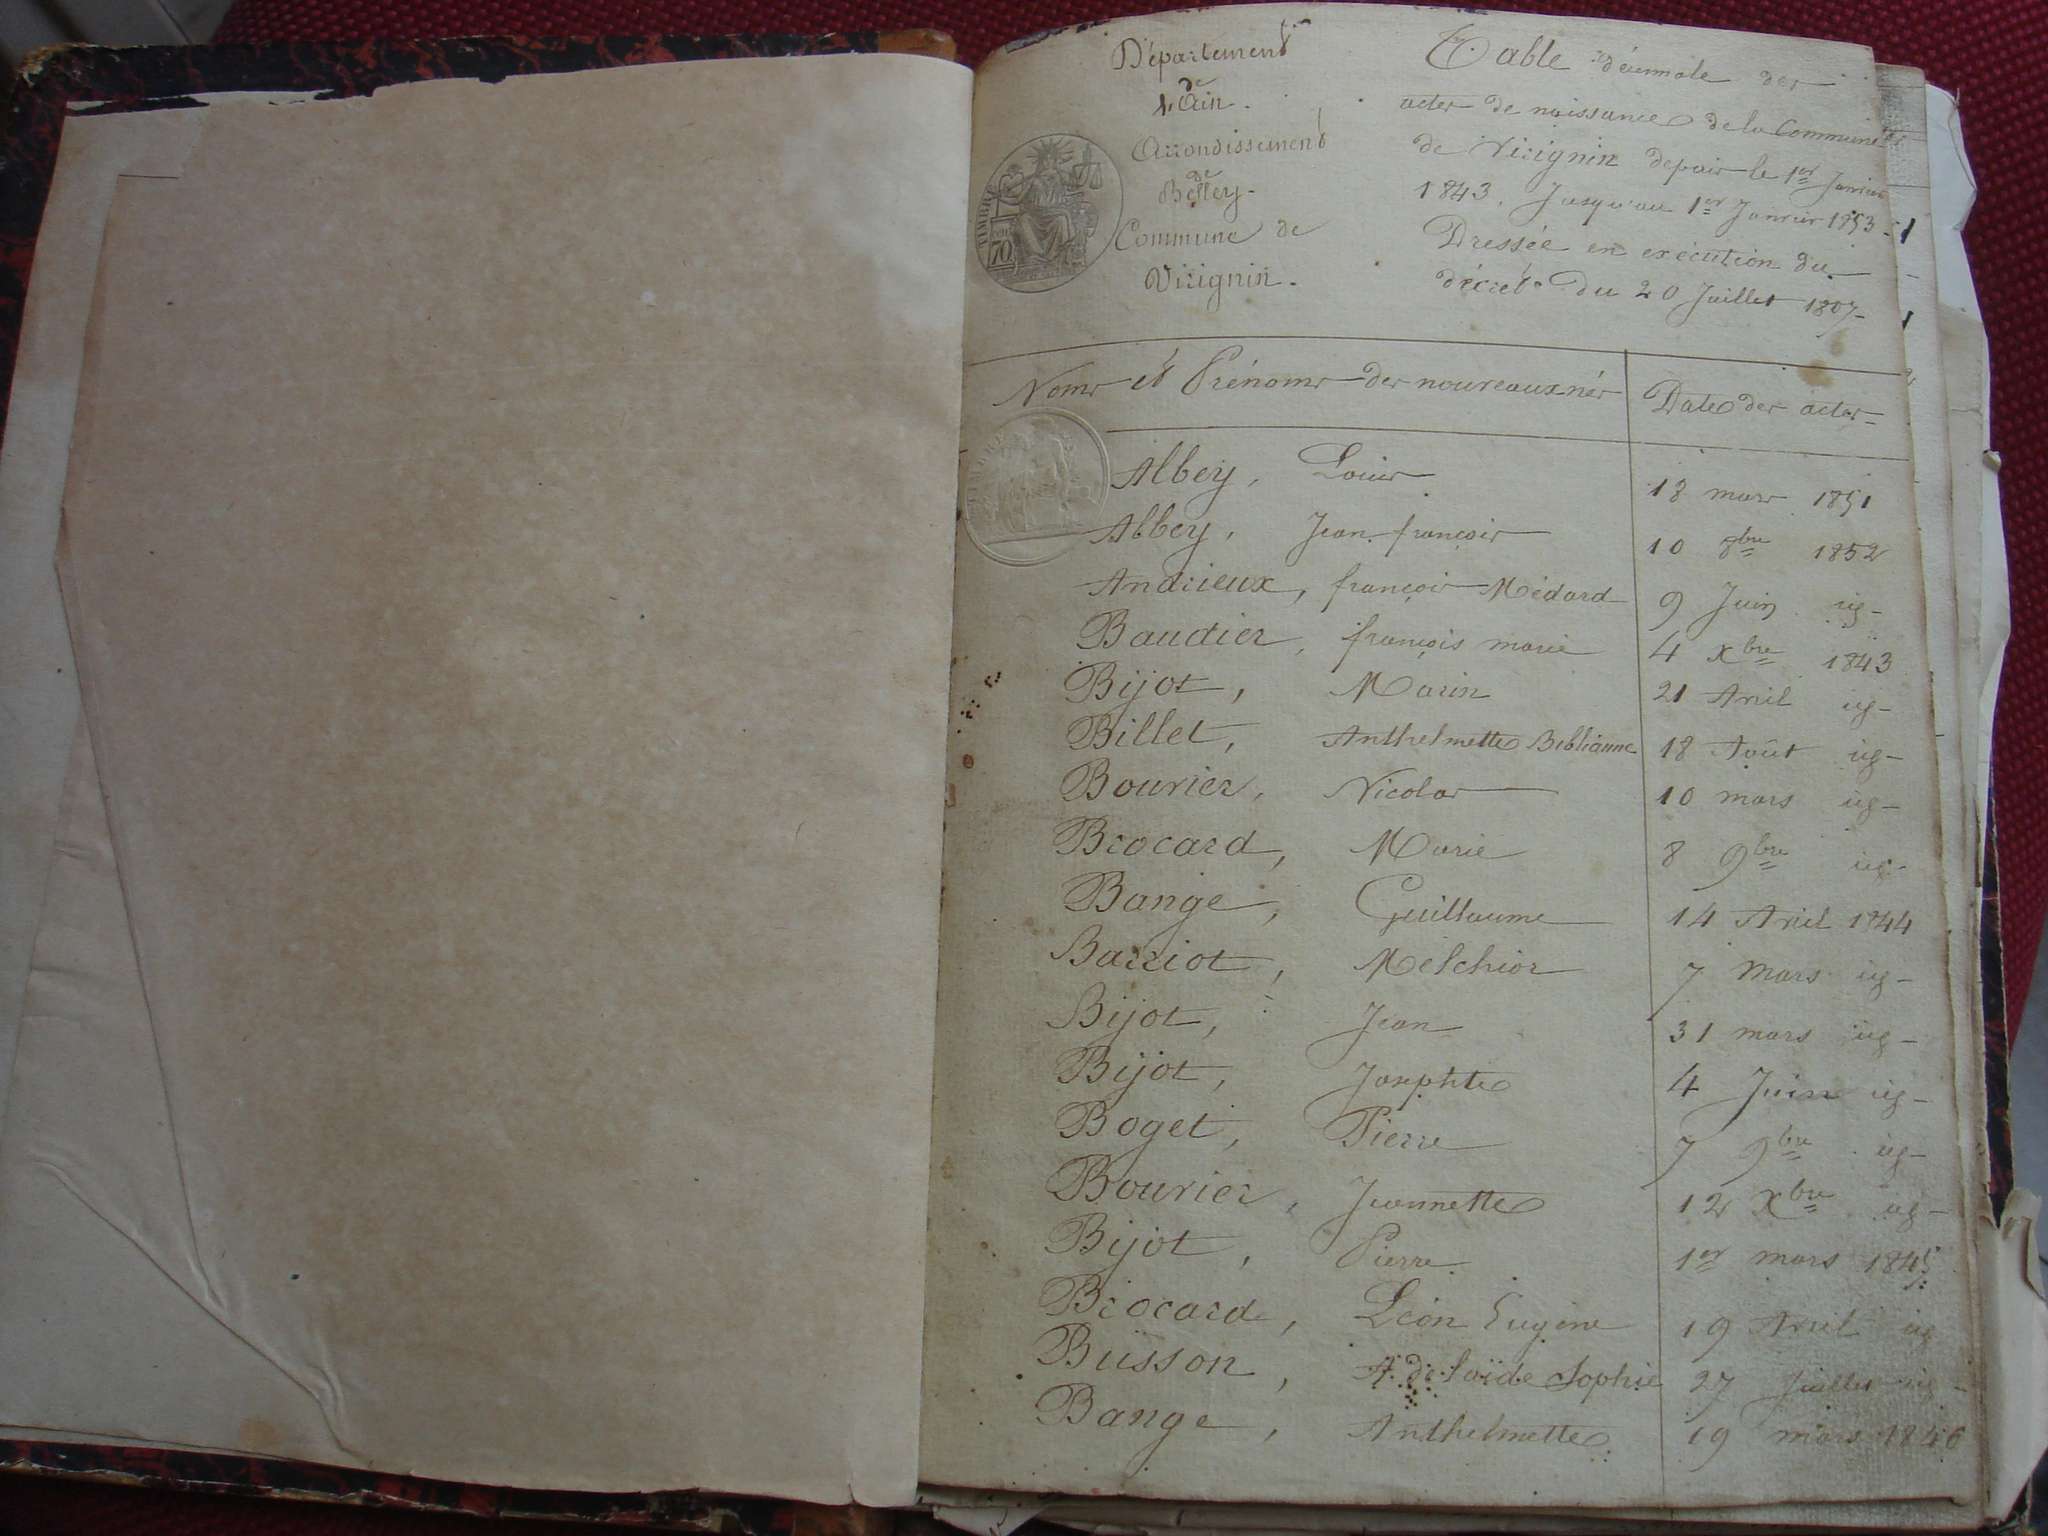 Département
de
l'Ain.
Arrondissement
de
Belley-
Commune de
Virignin.
Table décennale des
actes de naissance de la Commune
de Virignin depuis le 1er Janvier
1843. Jusqu'au 1er Janvier 1853-
Dressée en exécution du
décret du 20 Juillet 1807-
TIMBRE
70
TIMBRE
Noms et Prénoms des nouveaux nés Date des actes
Albey, Louis 18 mars 1851
Albey, Jean françois 10 8bre 1852
Andrieux, françois Médard 9 Juin ig-
Baudier, françois marie 4 Xbre 1843
Bijot, Marin 21 Avril ig-
Billet, Anthelmette Biblianne 18 Août ig-
Bouvier, Nicolas 10 mars ig-
Brocard, Marie 8 9bre ig-
Bange, Guillaume 14 Avril 1844
Barriot, Melchior 7 Mars ig-
Bijot, Jean 31 mars ig-
Bijot, Josephte 4 Juin ig-
Boget, Pierre 7 9bre ig-
Bouvier, Jeannette 12 Xbre ig-
Bijot, Pierre 1er mars 1845
Brocard, Léon Eugène 19 Avril ig
Buisson, Adelaïde Sophie 27 Juillet ig-
Bange, Anthelmette 19 mars 1846